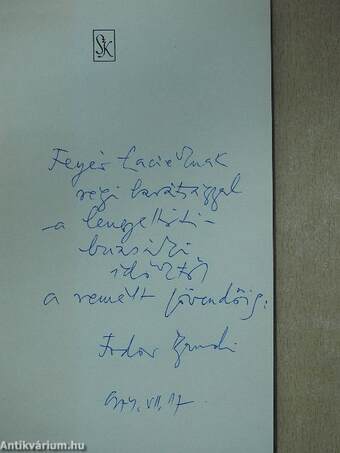 SK
Fejér Laciéknak
régi barátsággal
a lengyeltóti-
buzsáki
időktől
a remélt jövendőig:
Fodor Bandi
974. VII. 17.
Antikvárium.hu